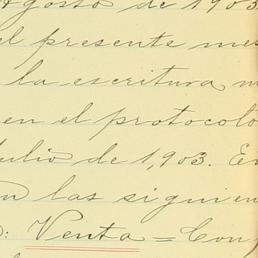 Agosto de 1903
el presente mes
la escritura
en el protocolo
Julio de 1,903. En
las siguien
: Venta = Con